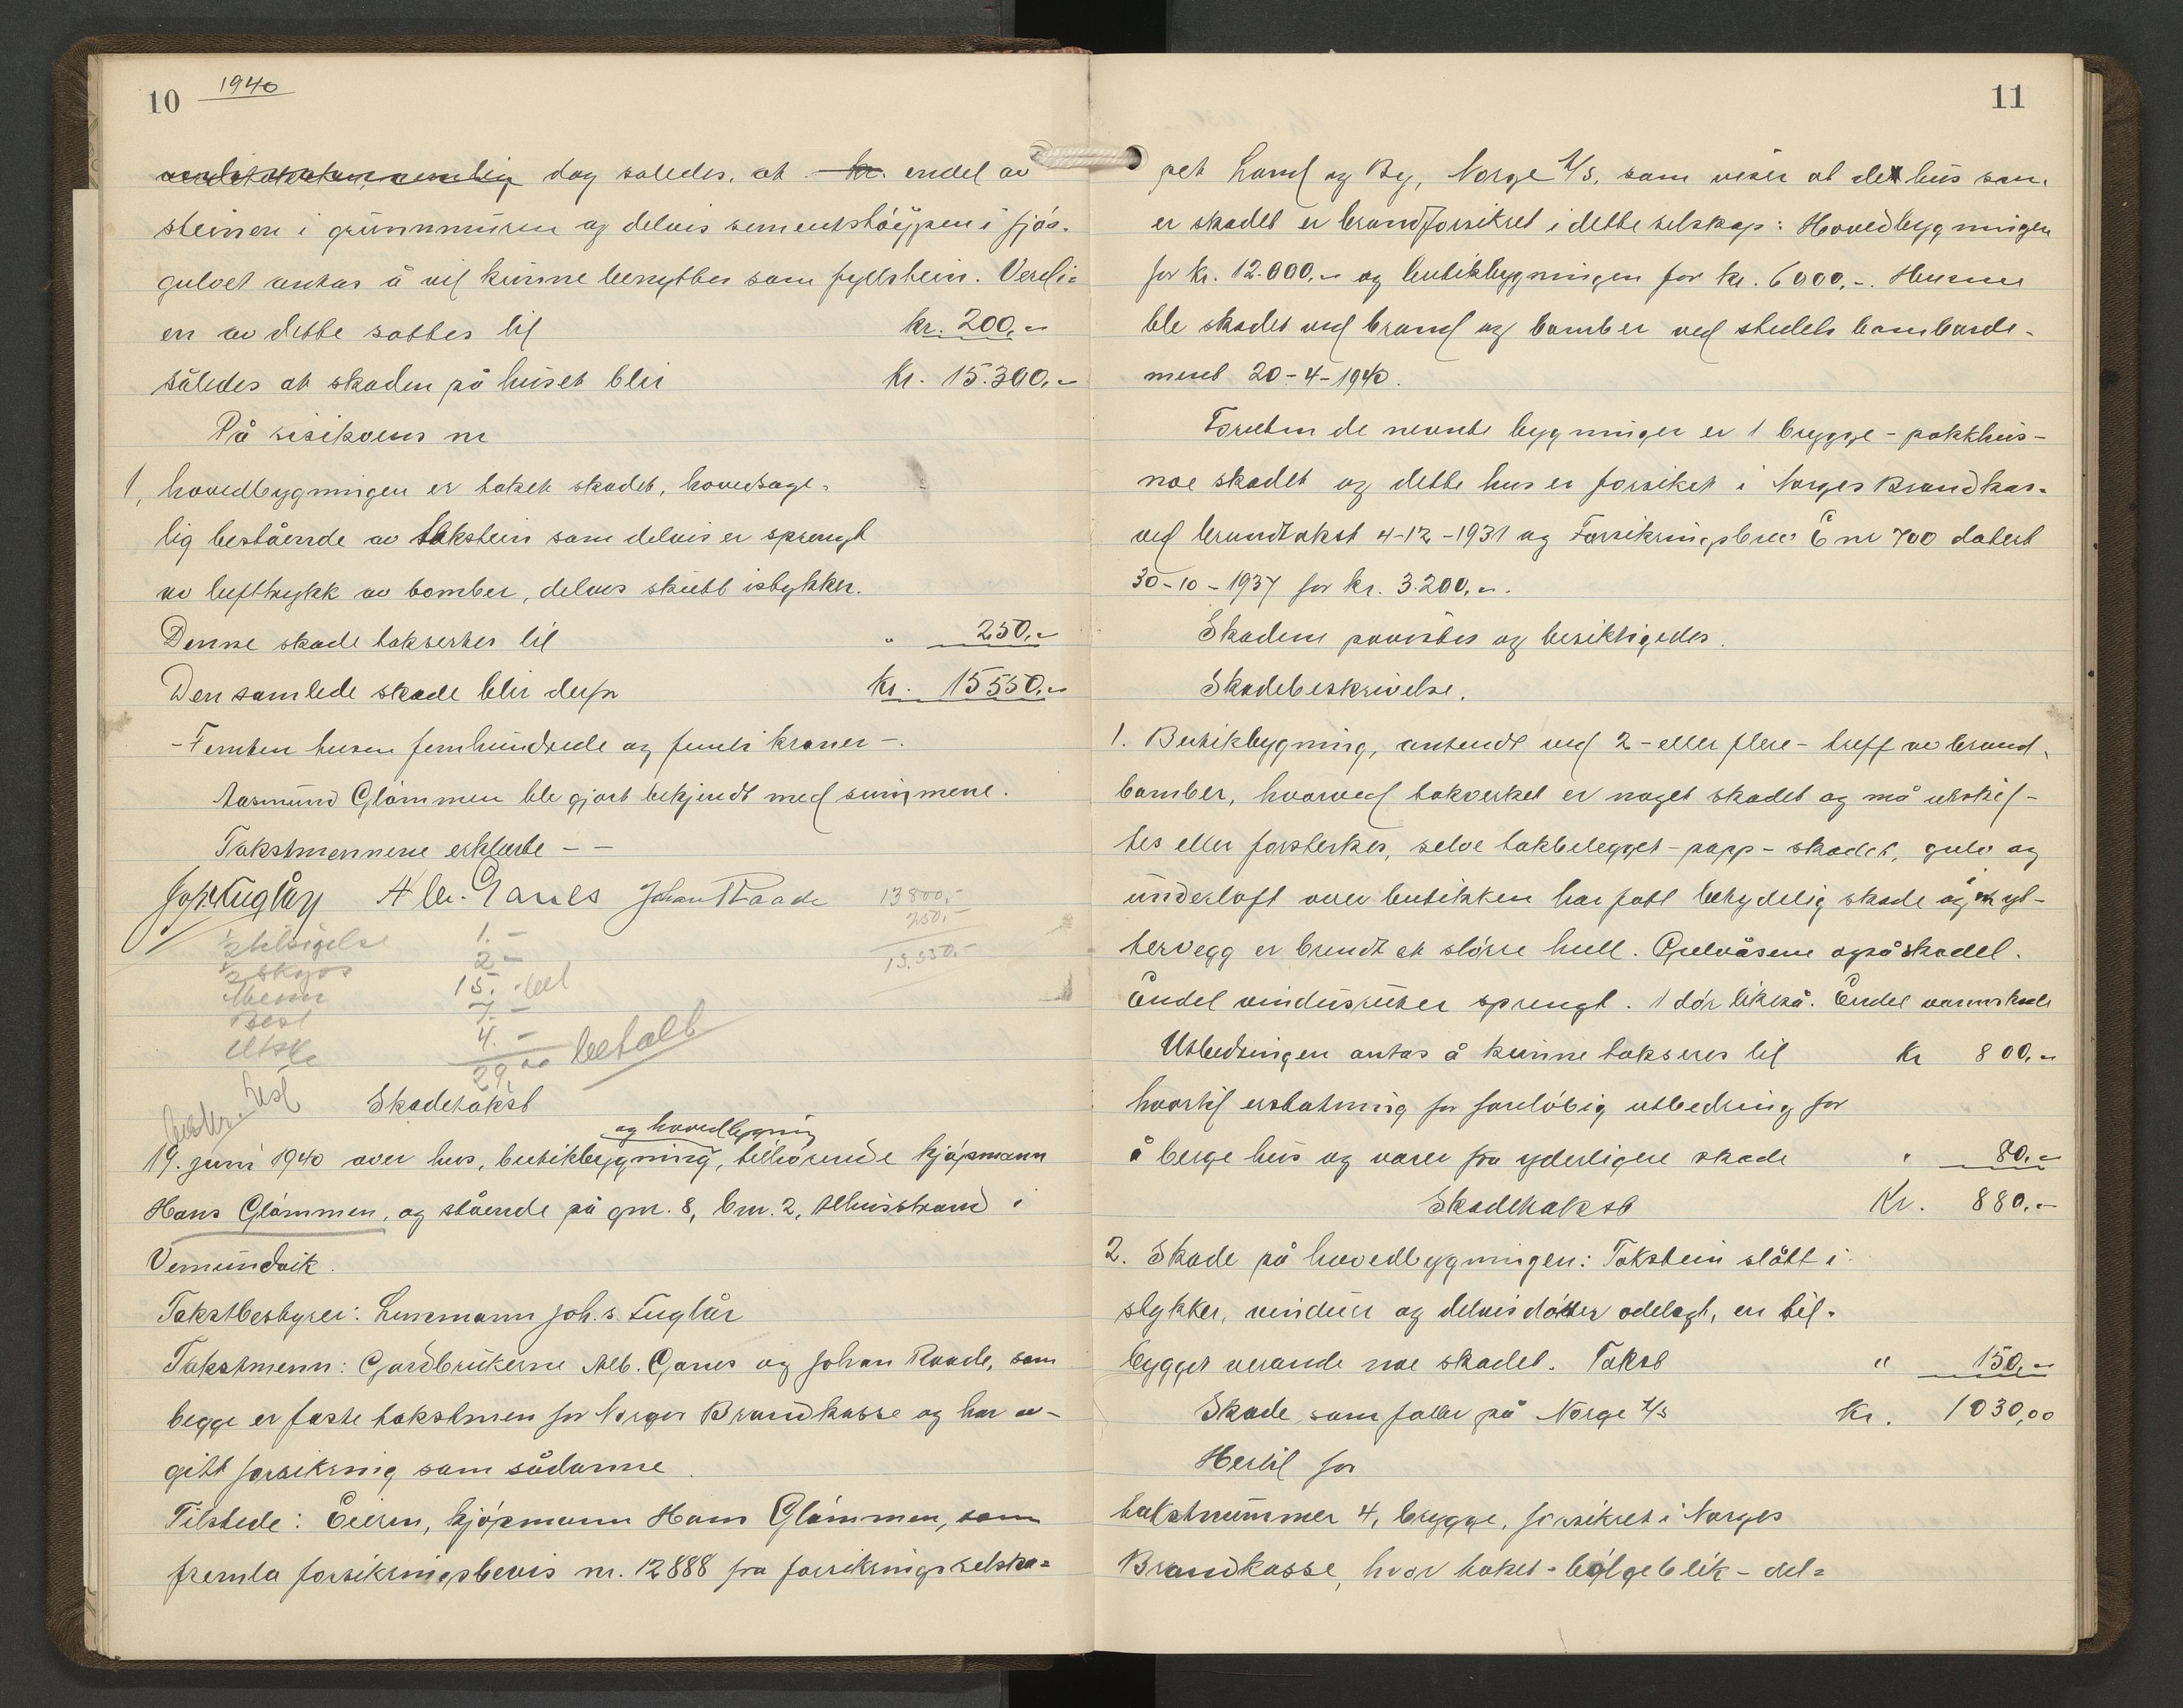 10
1940
dog således, at kr. endel av
steinen i grunnmuren og delvis sementstøypen i fjøs-
gulvet antas å vil kunne benyttes som fyllstein. Verdi-
en av dette sattes til kr. 200,-
således at skaden på huset blir kr. 15.300,-
På risikoens nr
1, hovedbygningen er taket skadet, hovedsage-
lig bestående av takstein som delvis er sprengt
av lufttrykk av bomber, delvis skutt istykker.
Denne skade taksertes til " 250,-
Den samlede skade blir derfor kr. 15550,-
- Femten tusen femhundrede og femti kroner -.
Aasmund Glømmen ble gjort bekjendt med summene.
Takstmennene erklærte - -
Joh. Fuglår Alb. Ganes Johan Raade 13800,-
250,-
½ tilsigelse 1.-
15.550,-
½ skyss 2.-
15.-
7.-
4.-
29,00 betalt
Skadetakst
og hovedbygning
19. juni 1940 over hus, butikkbygning, tilhørende kjøpmann
Hans Glømmen, og stående på gnr. 8, bnr. 2, Alhusstrand i
Vemundvik.
Takstbestyrer: Lensmann Joh. s. Fuglår
Takstmenn: Gardbrukerne Alb. Ganes og Johan Raade, som
begge er faste takstmen for Norges Brandkasse og har av-
gitt forsikring som sådanne.
Tilstede: Eieren, kjøpmann Hans Glømmen, som
fremla forsikringsbevis nr. 12888 fra forsikringsselska-
11
pet Land og By, Norge A/s, som viser at det hus som
er skadet er brandforsikret i dette selskap: Hovedbygningen
for kr. 12.000,- og butikbygningen for kr. 6000,-. Husene
ble skadet ved brand og bomber ved stedets bombarde-
ment 20-4-1940.
Foruten de nevnte bygninger er 1 brygge - pakkhus -
noe skadet og dette hus er forsikret i Norges Brandkas-
ved brandtakst 4-12-1931 og Forsikringsbrev E nr 700 datert
30-10-1937 for kr. 3.200,-.
Skadene påvistes og besiktigedes.
Skadebeskrivelse.
1. Butikbygning, antendt ved 2 - eller flere - treff av brand-
bomber, hvorved takverket er noget skadet og må utskif-
tes eller forsterkes, selve takbelegget - papp - skadet, gulv og
underloft over butikken har fått betydelig skade og i yt-
tervegg er brendt et større hull. Gulvåsene også skadet.
Endel vindusruter sprengt. 1 dør likeså. Endel
Utbedringen antas å kunne takseres til Kr 800,-
hvortil erstatning for foreløbig utbedring for
å berge hus og varer fra yderligere skade " 80,-
Skadetakst Kr. 880,-
2. Skade på hovedbygningen: Takstein slått i
stykker, vinduer og delvis dører ødelagt, en til-
bygget veranda noe skadet. Takst " 150,-
Skade som faller på Norge A/s Kr. 1030,00
Hertil for
takstnummer 4, brygge, forsikret i Norges
Brandkasse, hvor taket - bølgeblik - del-